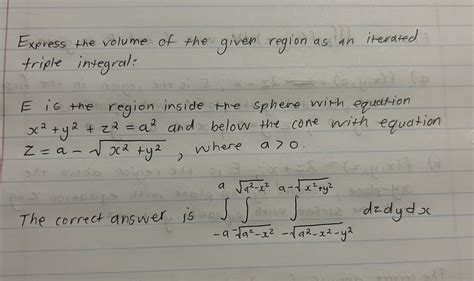 Express the volume of the given region as an iterated
triple integral:
E is the region inside the sphere with equation
x² + y² + z² = a² and below the cone with equation
z = a - √(x² + y²), where a > 0.
The correct answer is ∫_{-a}^{a} ∫_{-√(a²-x²)}^{√(a²-x²)} ∫_{-√(a²-x²-y²)}^{a-√(x²+y²)} dz dy dx